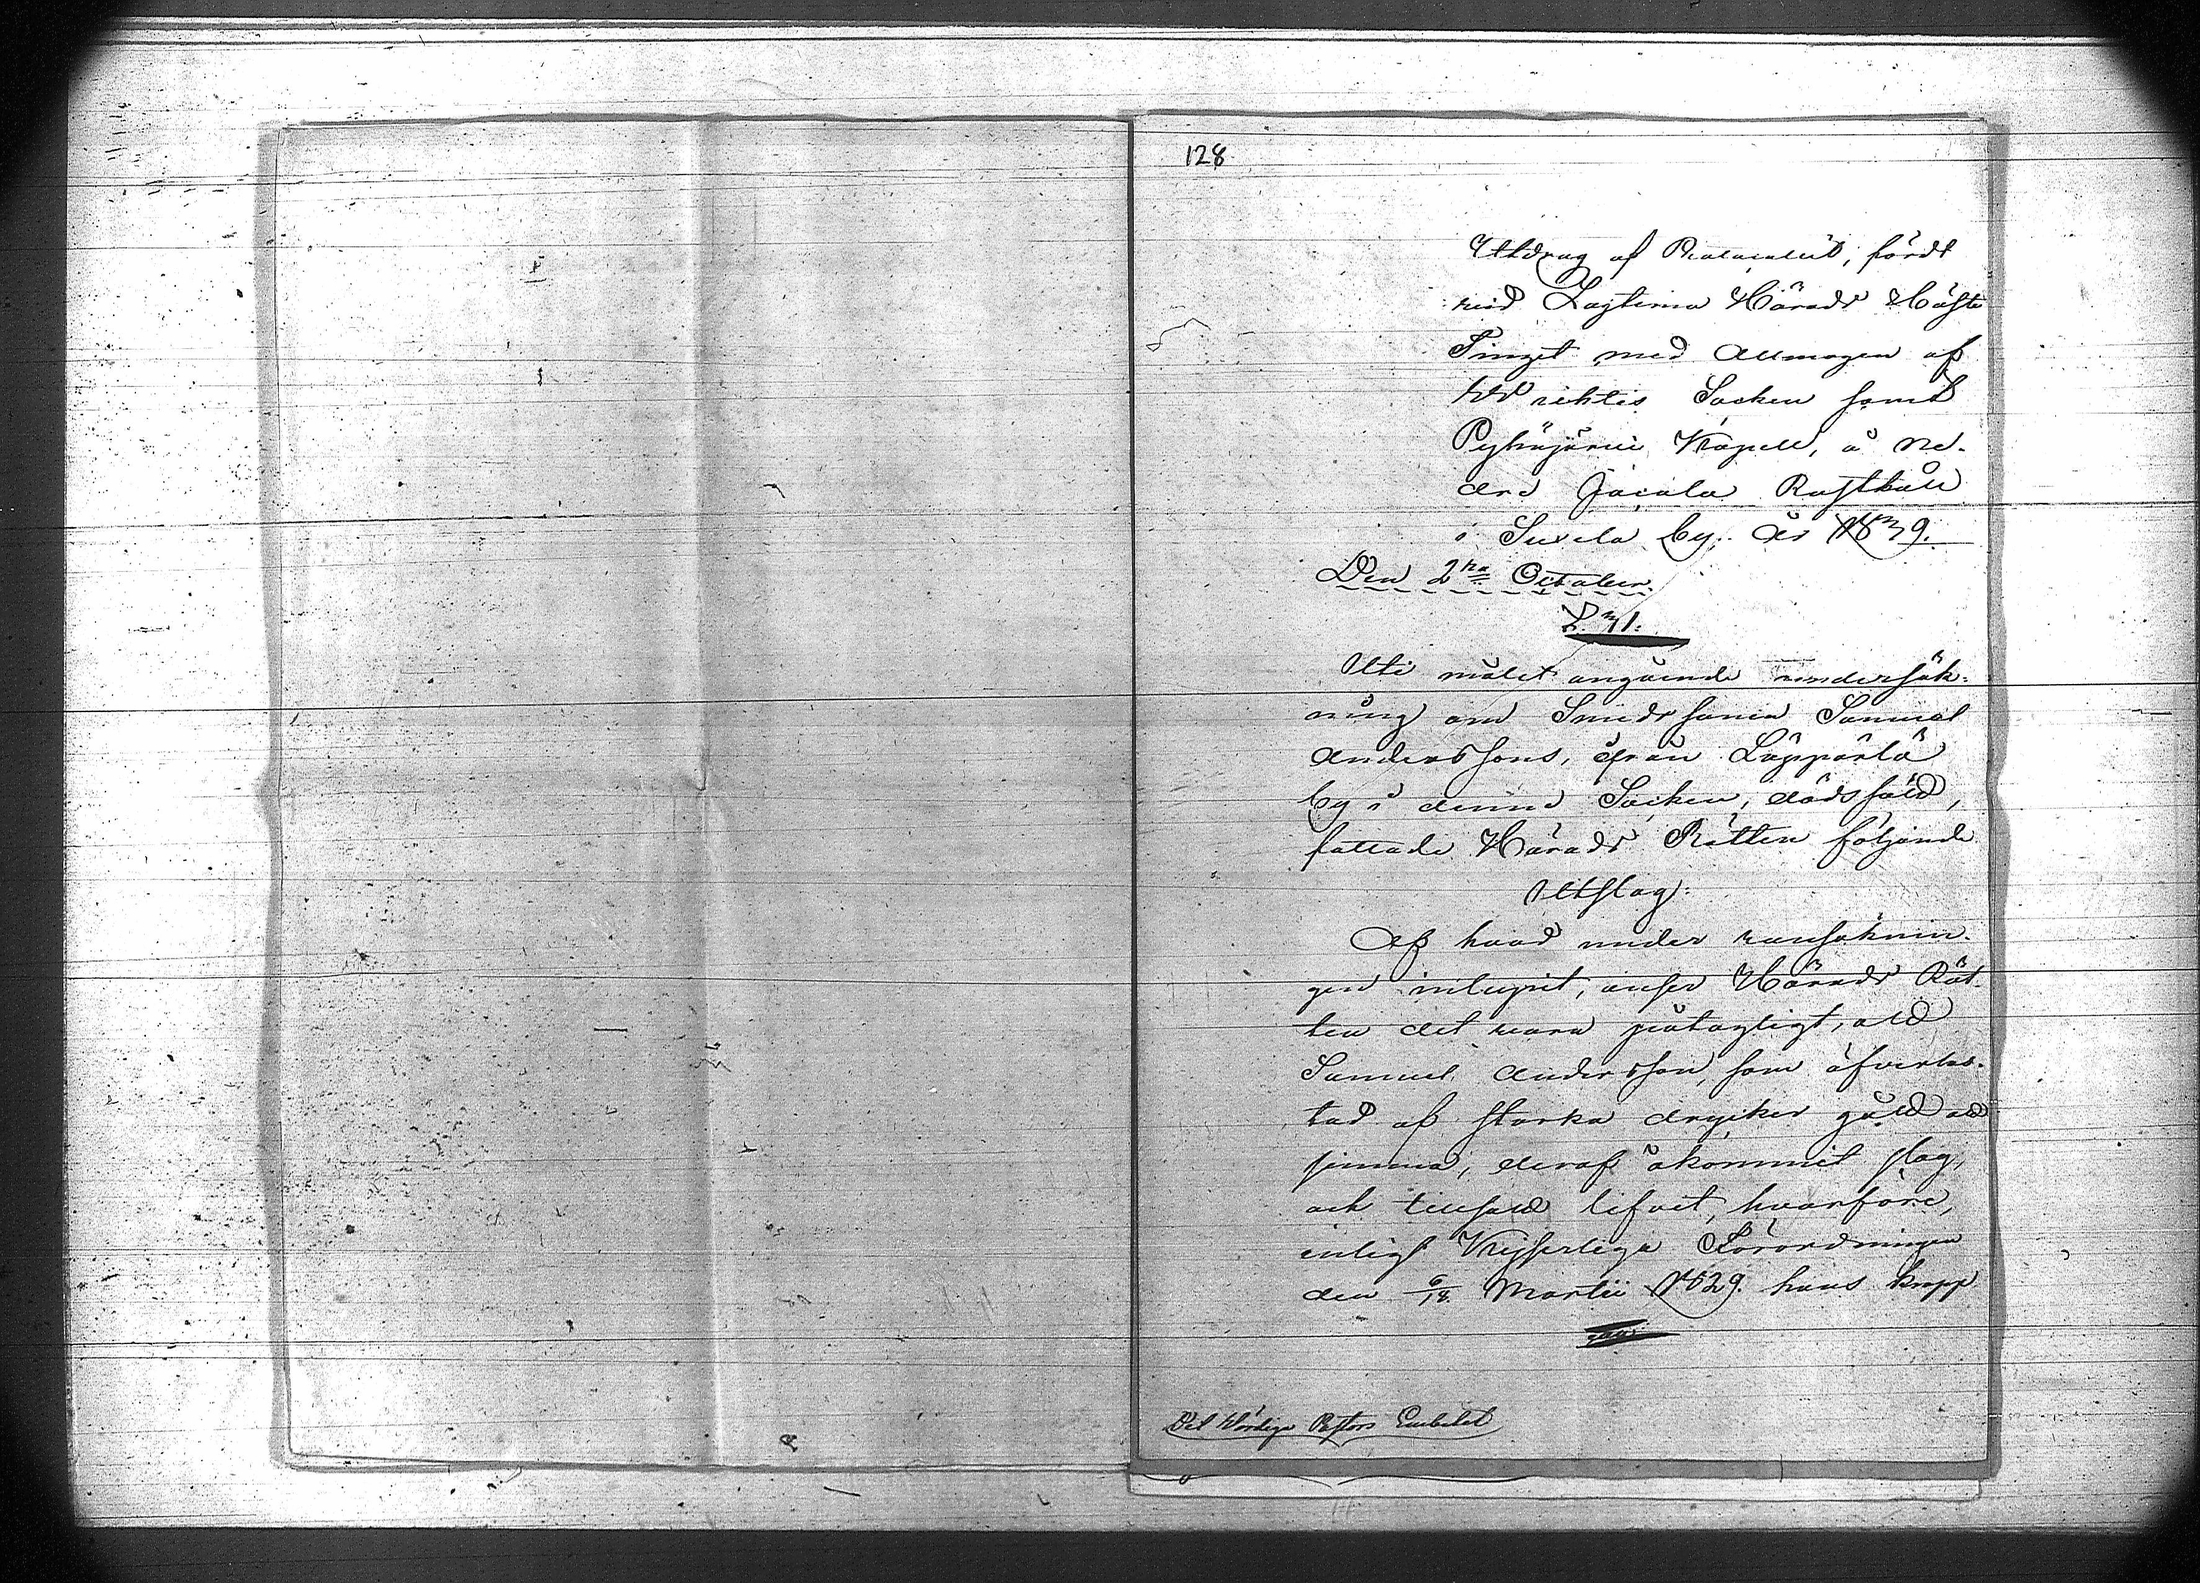 128
Utdrag af Protocollet, fördt
vid Lagtima Härads Höste
Tinget med Allmogen af
Wirktis Socken samt
Pyhäjärvi Kapell, å Ne-
dre Jäculä Rusthåll
i Suxela by. År 1839.
Den 2dra October.
§. 31.
Uti målet angående undersök-
ning om Smedssonen Samuel
Anderssons, ifrån Läppärlä
by i denna Socken, dödsfall,
fattade Härads Rätten följande
Utslag:
Af hvad under ransaknin-
gen inlupit, anser Härads Rät-
ten det vara påtagligt, att
Samuel Andersson, som öfverlas-
tad af starka drycker gått att
simma, deraf åkommit slag,
och tillsatt lifvet, hvarföre,
enligt Kejserliga Förordningen
den 6/18. Martii 1829. hans kropp
Det Vördiga Pastors Embetet